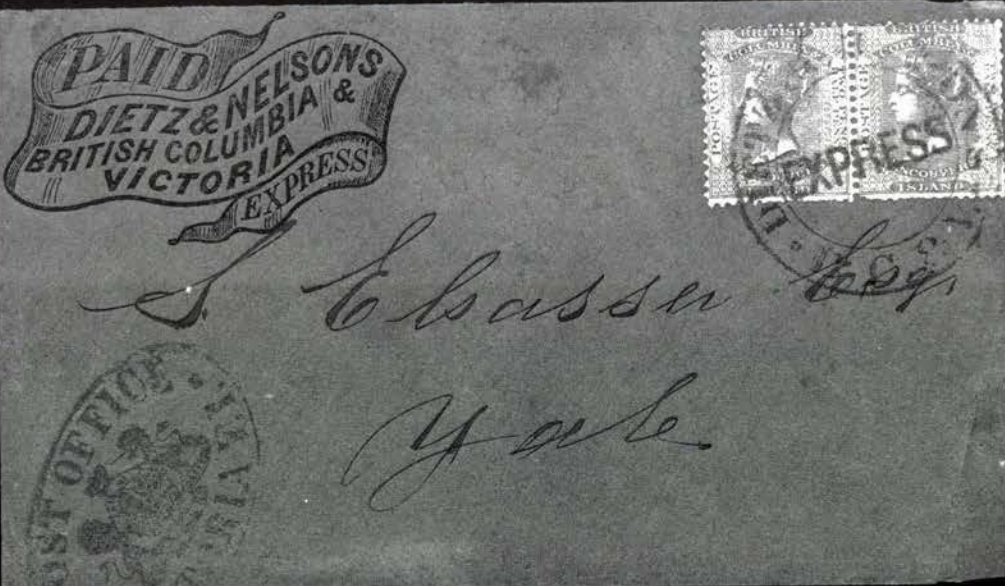 PAID
DIETZ & NELSONS
BRITISH COLUMBIA &
VICTORIA
EXPRESS
BRITISH
COLUMBIA
POSTAGE
BRITISH
COLUMBIA
POSTAGE
ISLAND
EXPRESS
S. Elsasser Esq.
Yale
POST OFFICE